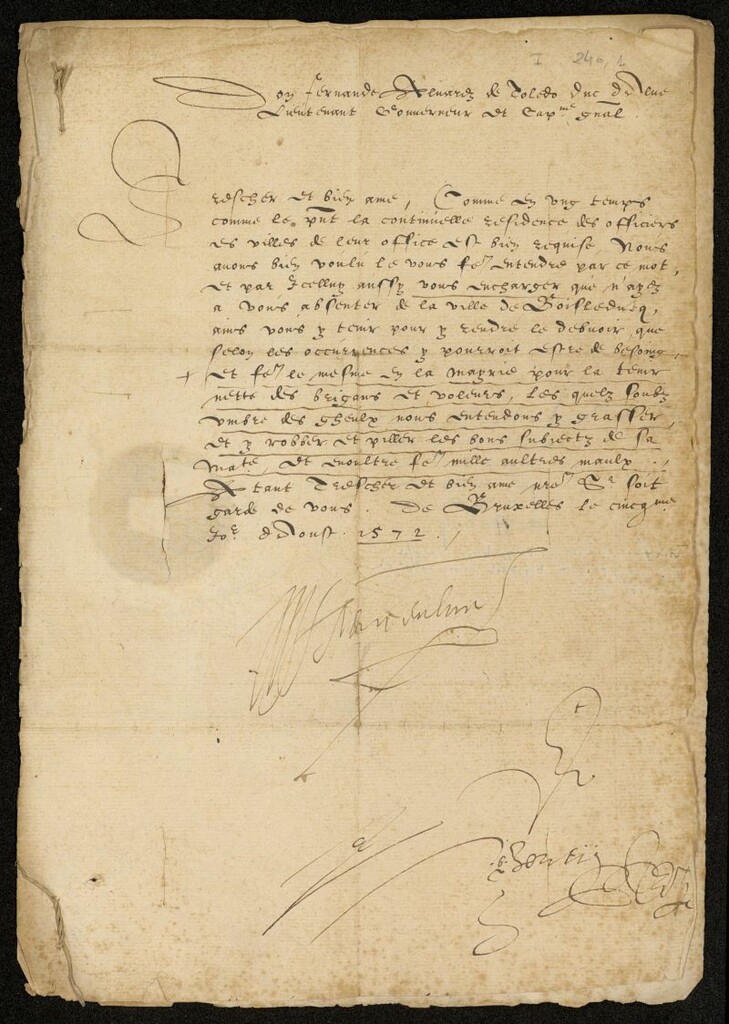 I 240, 1
Don Fernande Alvarez de Toledo duc d'Alve
Lieutenant Gouverneur et Cap.ne gnal
Trescher et bien ame, Comme en ung temps
comme le pnt la continuelle residence des officiers
es villes de leur office est bien requise. Nous
avons bien voulu le vous fe entendre par ce mot,
et par Icelluy aussy vous encharger que n'ayez
a vous absenter de la ville de Boisleducq,
ains vous y tenir pour y rendre le debvoir que
selon les occurrences y pourroit estre de besoing,
et fe le mesme en la mayrie pour la tenir
nette des brigans et voleurs, les quelz soubz
umbre des gheulx nous entendons y grasser,
et y robber et piller les bons subiectz de sa
Mate, et enoultre fe mille aultres maulx.
A tant Trescher et bien ame nre Sr soit
garde de vous. De Bruxelles le cincqme
Jor d'Aoust. 1572.